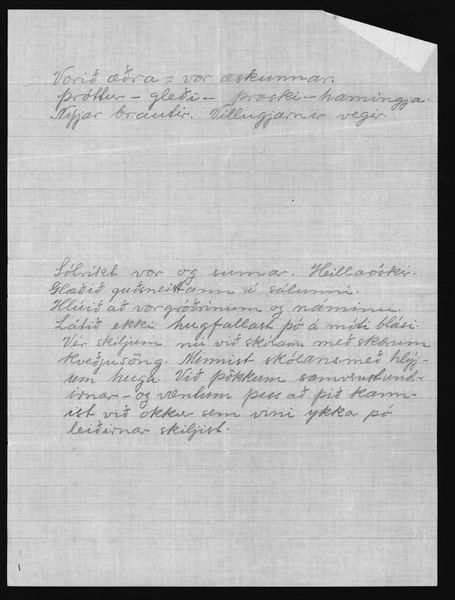 Vorið æðra = vor æskunnar.
Þróttur - gleði - þroski - hamingja.
Nýjar brautir. Villugjarnir vegir.
Sólríkt vor og sumar. Heillaóskir.
Glæðið guðsneistann í sálunni.
Hlúið að vorgróðrinum og náminu.
Látið ekki hugfallast þó á móti blási.
Vér skiljum nú við skólann með skærum
kveðjusöng. Minnist skólans með hlýj-
um huga. Við þökkum samverustund-
irnar - og væntum þess að þið kann-
ist við okkur sem vini ykkar þó
leiðirnar skiljist.
1